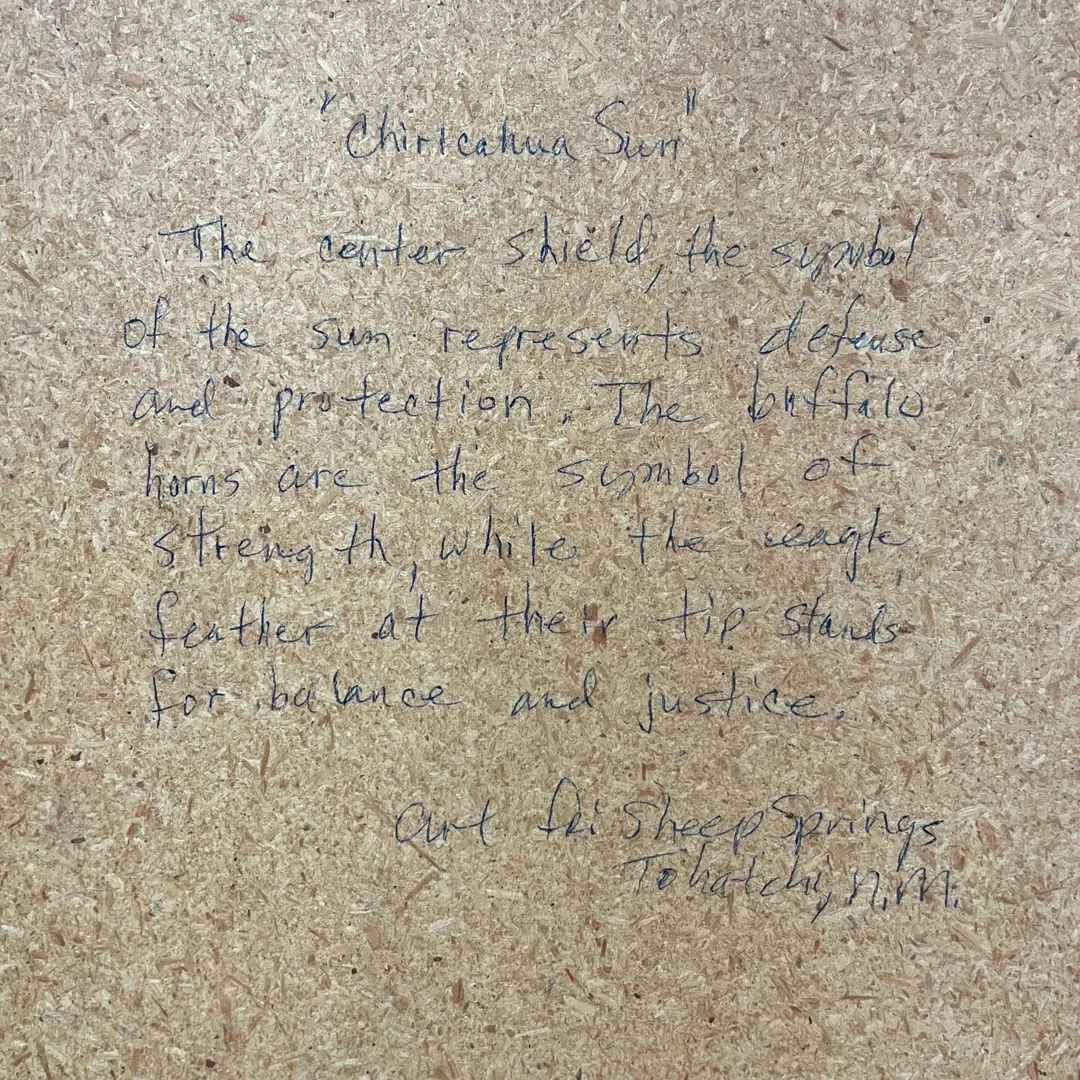 "Chiricahua Sun"
The center shield, the symbol
of the sun represents defense
and protection. The buffalo
horns are the symbol of
strength, while the eagle
feather at their tip stands
for balance and justice.
Art Sheep Springs
Tohatchi, N.M.